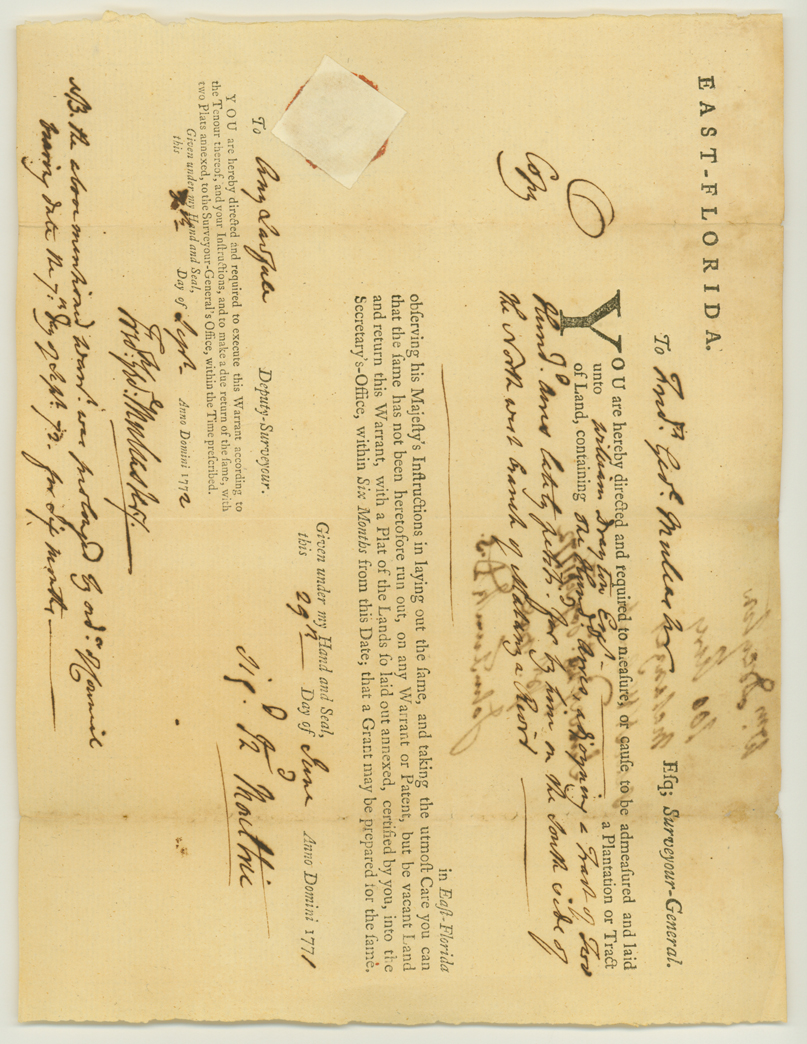 EAST-FLORIDA.
To Fred.k Geo. Mulcaster Esq; Surveyour-General.
Copy
YOU are hereby directed and required to meaſure, or cauſe to be admeaſured and laid
unto William Drayton Esqr. a Plantation or Tract
of Land, containing Acres adjoining a Tract of
Hund.d Acres lately by him on the South side of
the North west branch of River
in Eaſt-Florida
obſerving his Majeſty's Inſtructions in laying out the ſame, and taking the utmoſt Care you can
that the ſame has not been heretofore run out, on any Warrant or Patent, but be vacant Land
and return this Warrant, with a Plat of the Lands ſo laid out annexed, certified by you, into the
Secretary's-Office, within Six Months from this Date; that a Grant may be prepared for the ſame.
Given under my Hand and Seal,
this 29th Day of June Anno Domini 1771
Sig.d Jn Moultrie
To Deputy-Surveyour.
YOU are hereby directed and required to execute this Warrant according to
the Tenour thereof, and your Inſtructions, and to make a due return of the ſame, with
two Plats annexed, to the Surveyour-General's Office, within the Time preſcribed.
Given under my Hand and Seal,
this 7th Day of Sept. Anno Domini 1772
Fred: Geo: Mulcaster
NB. the above mentioned Warrt. was prolonged by ord.r of Council
bearing date the 7th Day of Sept. 72. for Six months